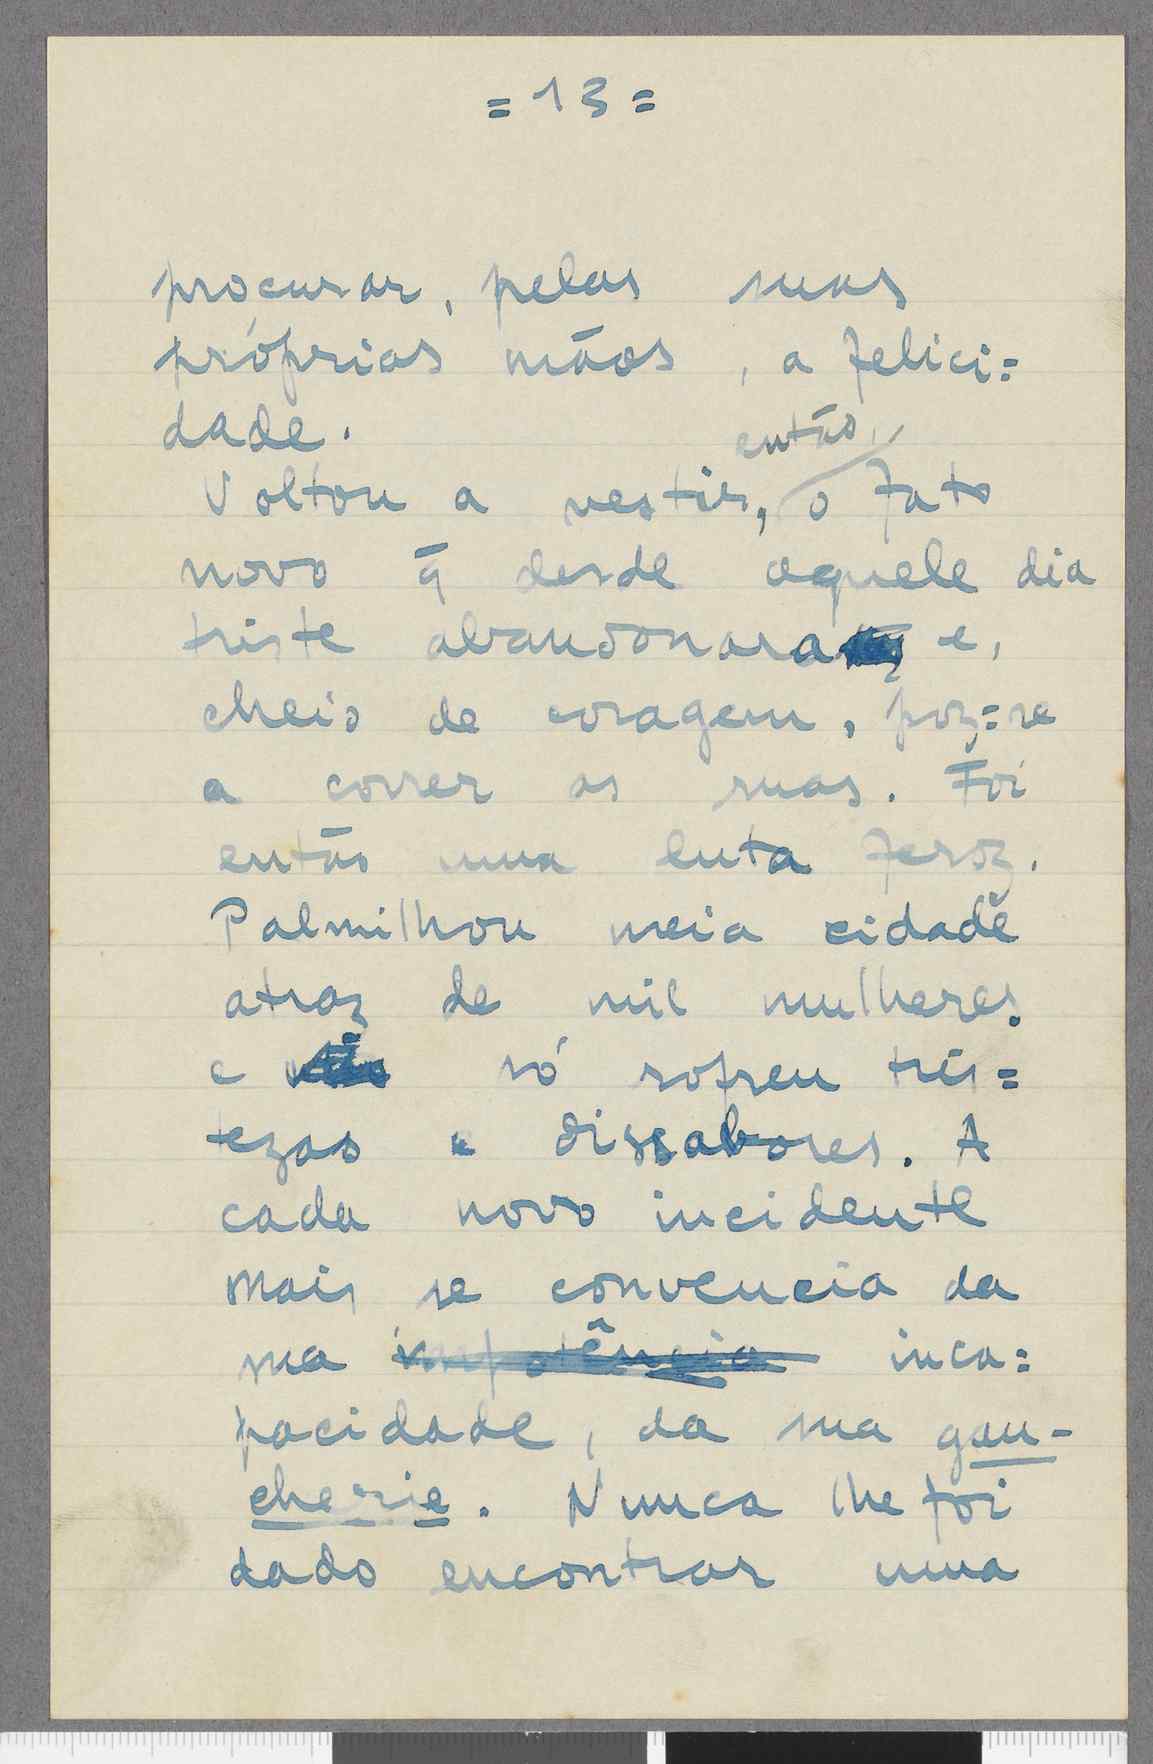 = 13 =
procurar, pelas suas
próprias mãos, a felici=
dade.
então,
Voltou a vestir, o fato
novo q̄ desde aquele dia
triste abandonara e,
cheio de coragem, poz=se
a correr as ruas. Foi
então uma luta feroz.
Palmilhou meia cidade
atraz de mil mulheres
e não só sofreu tris=
tezas e dissabores. A
cada novo incidente
mais se convencia da
sua impotência inca=
pacidade, da sua gau-
cherie. Nunca lhe foi
dado encontrar uma